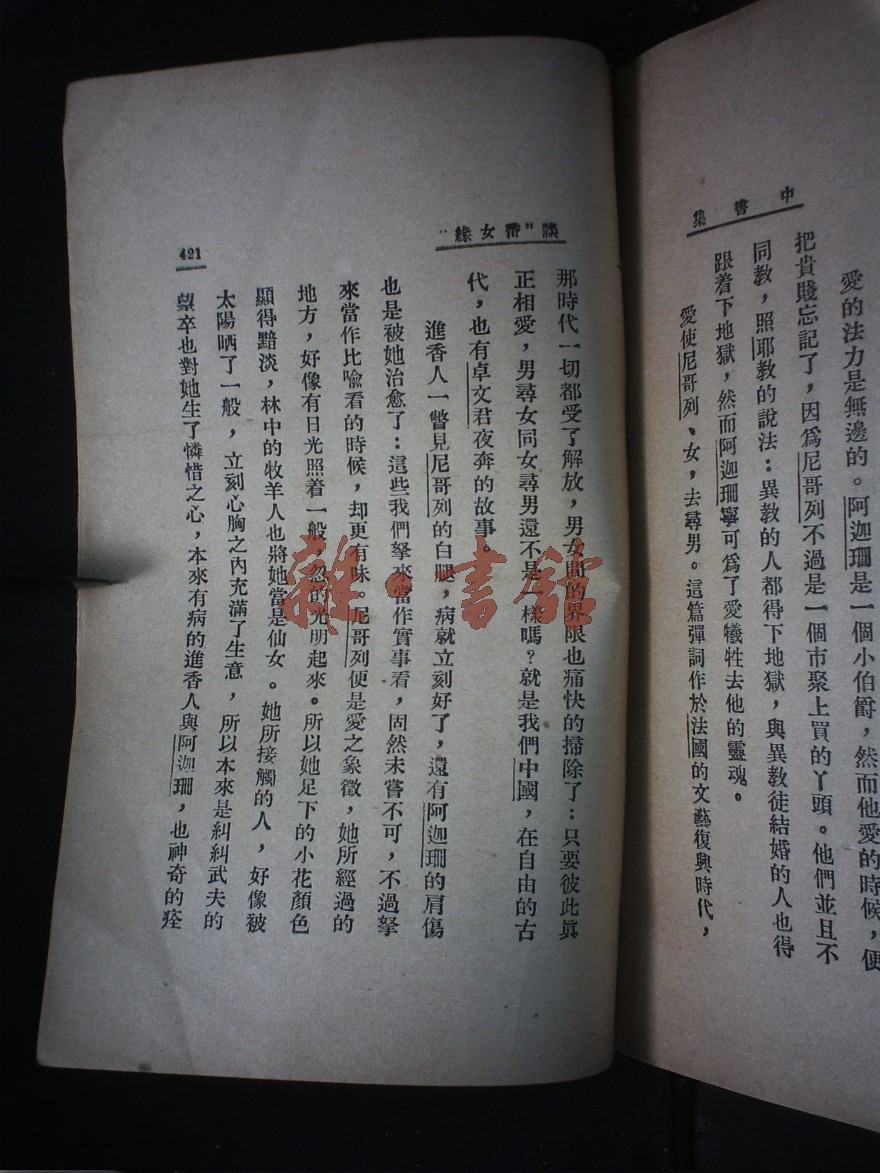 集書中
愛的法力是無邊的。阿迦珊是一個小伯爵，然而他愛的時候，便
把貴賤忘記了，因爲尼哥列不過是一個市聚上買的丫頭。他們並且不
同教，照耶教的說法：異教的人都得下地獄，與異教徒結婚的人也得
跟着下地獄，然而阿迦珊寧可爲了愛犧牲去他的靈魂。
愛使尼哥列、女，去尋男。這篇彈詞作於法國的文藝復興時代，
"緣女番"談
那時代一切都受了解放，男女間的界限也痛快的掃除了：只要彼此眞
正相愛，男尋女同女尋男還不是一樣嗎？就是我們中國，在自由的古
代，也有卓文君夜奔的故事。
進香人一瞥見尼哥列的白腿，病就立刻好了，還有阿迦珊的肩傷
也是被她治愈了：這些我們拏來當作實事看，固然未嘗不可，不過拏
來當作比喩看的時候，却更有味。尼哥列便是愛之象徵，她所經過的
地方，好像有日光照着一般，忽的光明起來。所以她足下的小花顏色
顯得黯淡，林中的牧羊人也將她當是仙女。她所接觸的人，好像被
太陽晒了一般，立刻心胸之內充滿了生意，所以本來是糾糾武夫的
望卒也對她生了憐惜之心，本來有病的進香人與阿迦珊，也神奇的痊
421
雜·書館